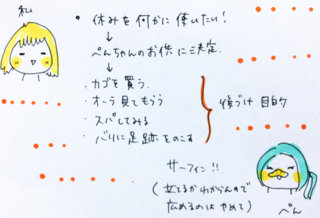 私
• 休みを何かに使いたい!
↓
ぺんちゃんのお供に決定.
↓
・カゴを買う.
・オーラ見てもらう
・スパしてみる
・バリに足跡をのこす
後づけ目的
サーフィン!!
(立てるかわからんので
広めるのはやめて)
ぺん